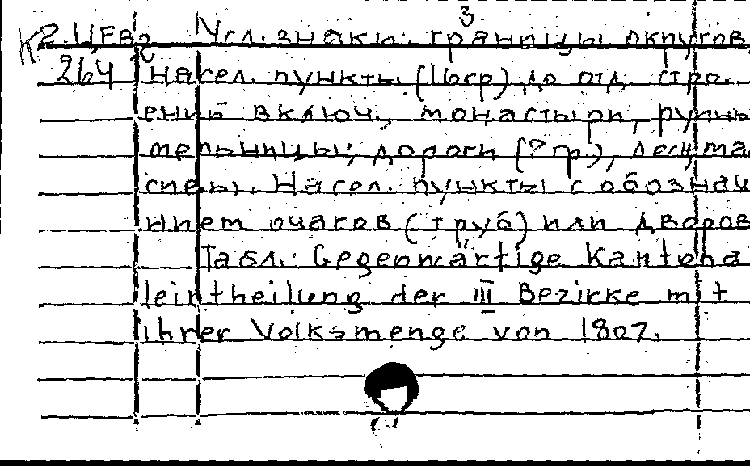 3
К2.ЦЕв2 Усл. знаки: границы округов,
264 насел. пункты (16гр) до отд. стро-
ений включ., монастыри, руины
мельницы; дороги (2 гр.), лесн. ма
сивы. Насел. пункты с обознач
нием очагов (труб) или дворов
Табл.: Gegenwärtige Kantona
leintheilung der III Bezirke mit
ihrer Volksmenge von 1807.